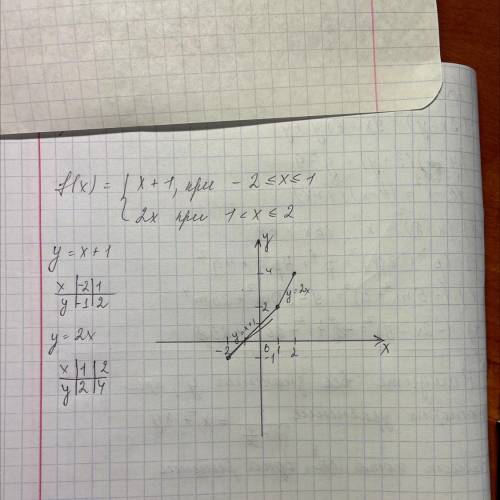 f(x) = { x + 1, при - 2 ≤ x ≤ 1
2x при 1 < x ≤ 2
y = x + 1
x | -2 | 1
y | -1 | 2
y = 2x
x | 1 | 2
y | 2 | 4
y
4
y = 2x
2
y = x+1
-2 0 1 2 x
-1